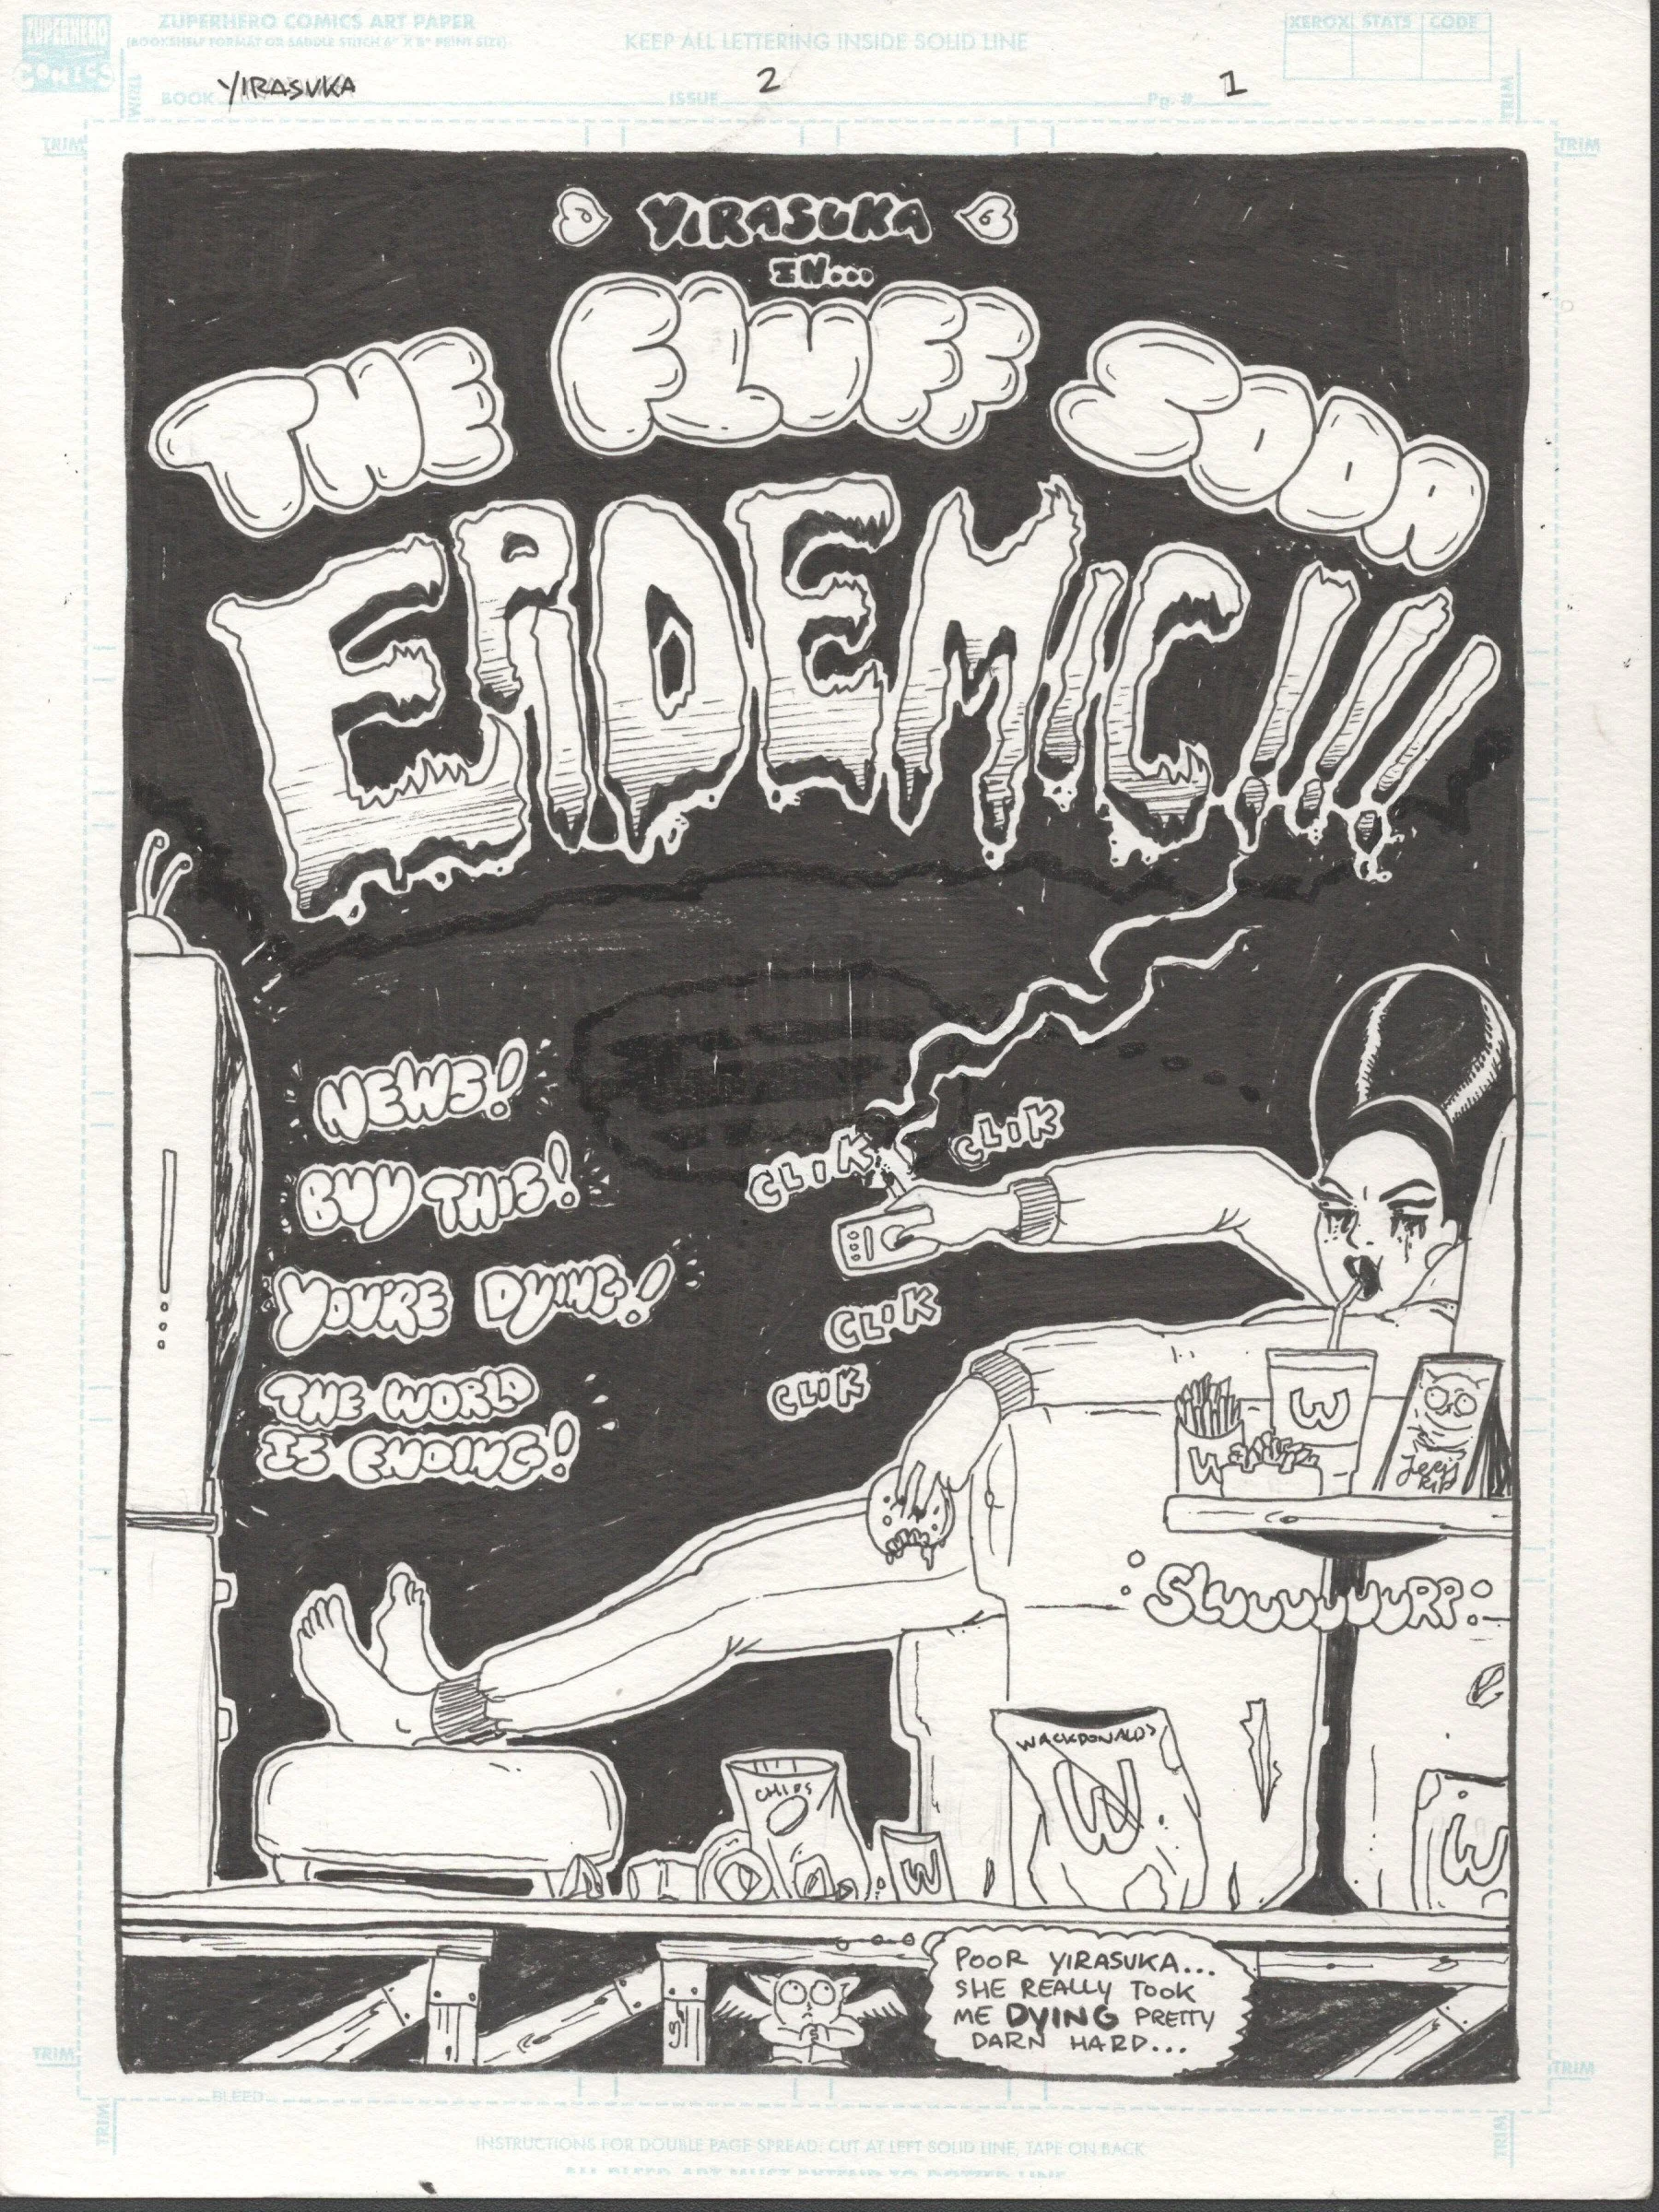 ZUPERHERO COMICS
ZUPERHERO COMICS ART PAPER
(BOOKSHELF FORMAT OR SADDLE STITCH 6" X 8" PRINT SIZE)
KEEP ALL LETTERING INSIDE SOLID LINE
XEROX STATS CODE
BOOK YIRASUKA ISSUE 2 Pg. # 1
TRIM
TRIM
TRIM
TRIM
YIRASUKA
IN...
THE FLUFF SODA
EPIDEMIC!!!
NEWS!
BUY THIS!
YOU'RE DYING!
THE WORLD
IS ENDING!
CLIK
CLIK
CLIK
CLIK
W
W
RIP
SLUUUUUUURP
WACKDONALDS
W
CHIPS
W
W
POOR YIRASUKA...
SHE REALLY TOOK
ME DYING PRETTY
DARN HARD...
TRIM
TRIM
BLEED
TRIM
TRIM
INSTRUCTIONS FOR DOUBLE PAGE SPREAD: CUT AT LEFT SOLID LINE, TAPE ON BACK
ALL BLEED ART MUST EXTEND TO DOTTED LINE